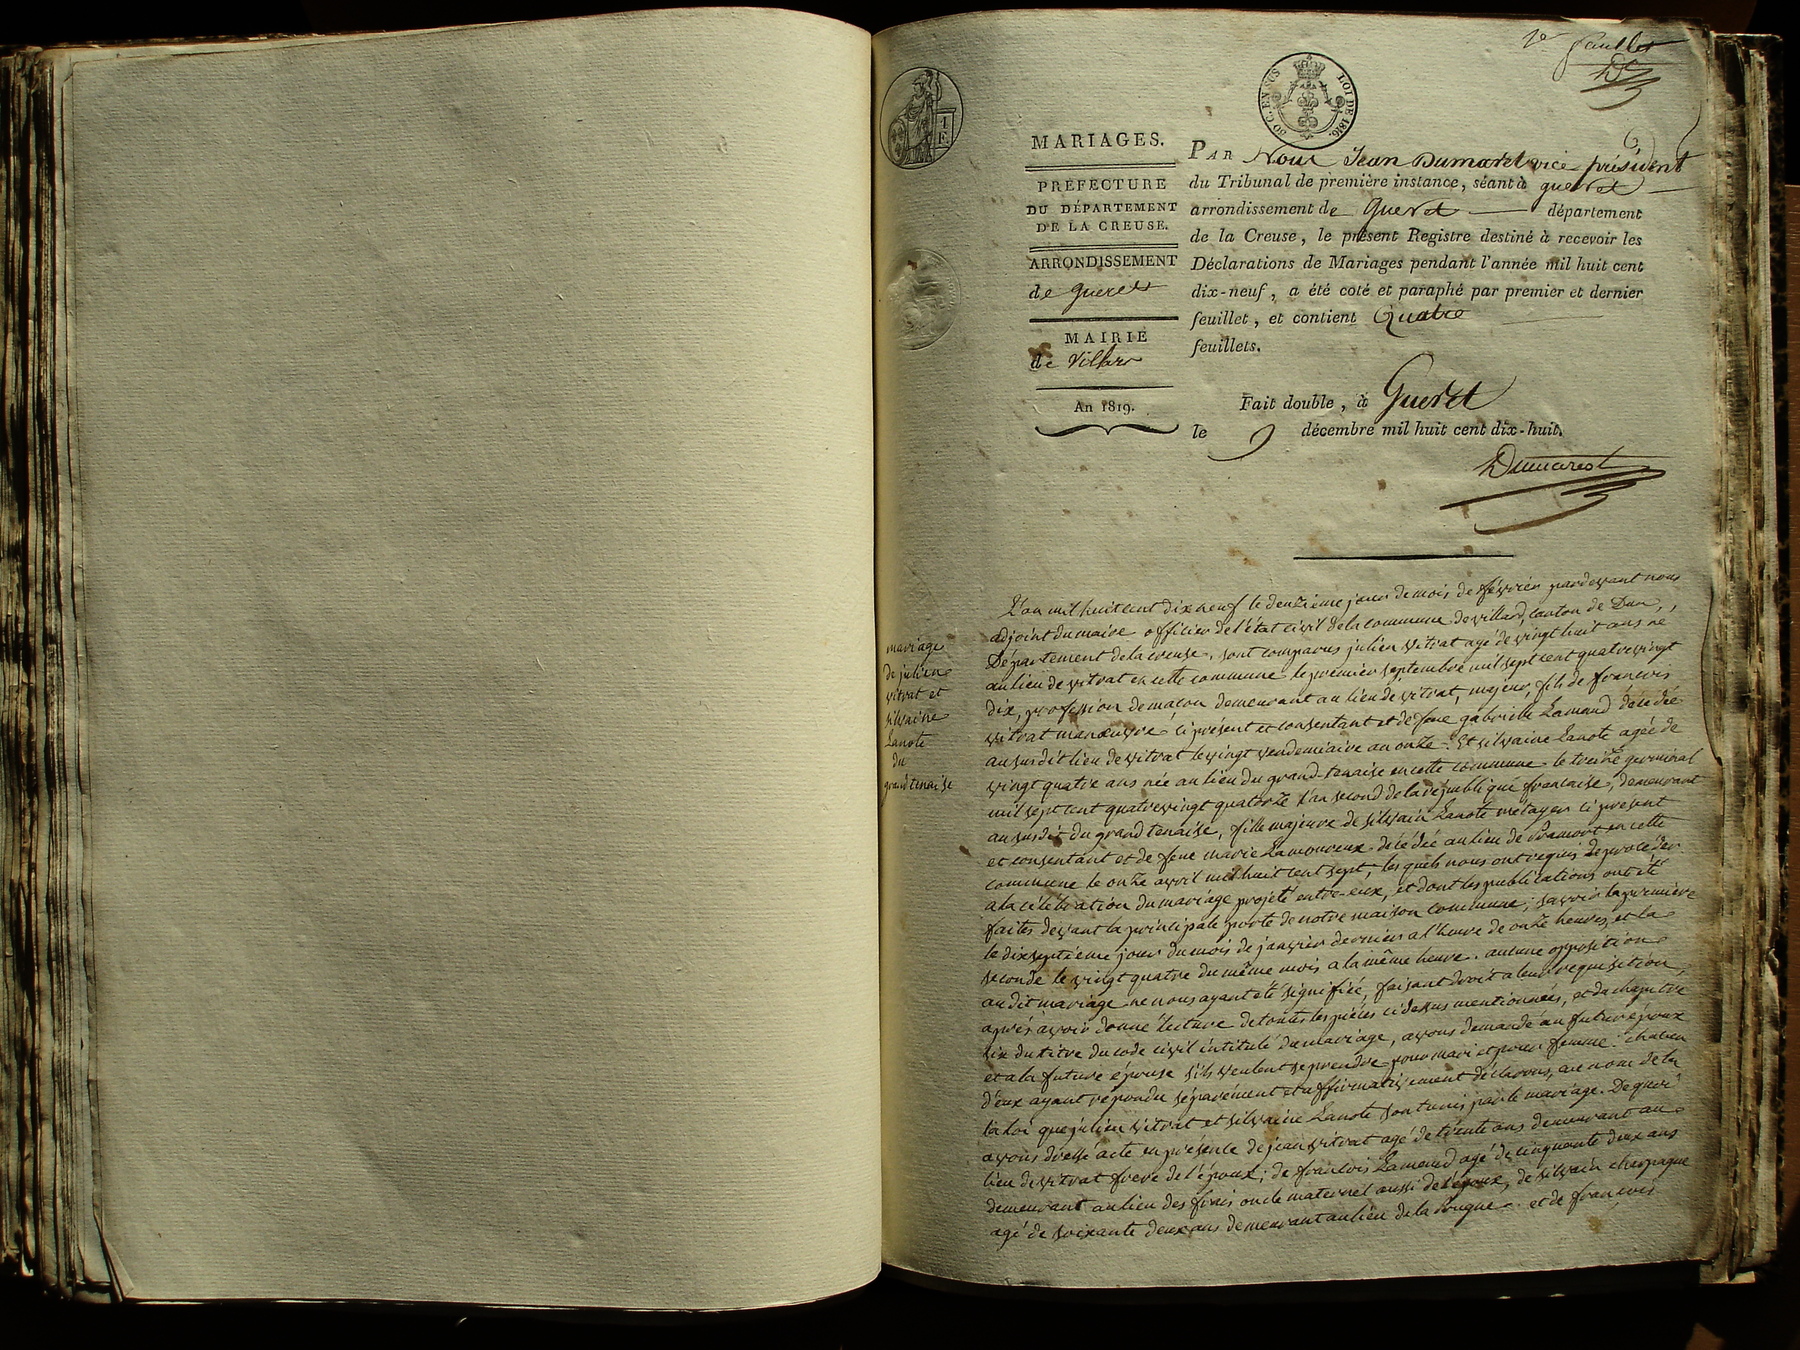 1er feuillet
30 C. EN SUS LOI DE 1816.
MARIAGES.
PRÉFECTURE
DU DÉPARTEMENT
DE LA CREUSE.
ARRONDISSEMENT
de Gueret
MAIRIE
de Villard
An 1819.
PAR Nous Jean Dumarest vice président
du Tribunal de première instance, séant à gueret
arrondissement de Gueret département
de la Creuse, le présent Registre destiné à recevoir les
Déclarations de Mariages pendant l'année mil huit cent
dix-neuf, a été coté et paraphé par premier et dernier
feuillet, et contient Quatre
feuillets.
Fait double, à Gueret
le 9 décembre mil huit cent dix-huit.
Dumarest
mariage
de julien
vitrat et
silvaine
Lanote
du
grand tenaise
L'an mil huit cent dix neuf le deuzieme jour du mois de février pardevant nous
adjoint du maire officier de l'état civil de la commune de villard, canton de Dun,
Département de la creuse, sont comparus julien vitrat agé de vingt huit ans né
au lieu de vitrat en cette commune le premier septembre mil sept cent quatre vingt
dix, profession de macon demeurant au lieu de vitrat, majeur, fils de francois
vitrat manœuvre ci présent et consentant et de feue gabrielle Lamaud décédée
au susdit lieu de vitrat le vingt vendemiaire an onze. Et silvaine Lanote agée de
vingt quatre ans née au lieu du grand-tenaise en cette commune le treize germinal
mil sept cent quatre vingt quatorze l'an second de la république francaise, demeurant
au susdit du grand tenaise, fille majeure de silvain Lanote métayer ci présent
et consentant et de feue marie Lamoureux décédée au lieu de en cette
commune le onze avril mil huit cent sept; les quels nous ont requis de proceder
a la célébration du mariage projeté entre-eux, et dont les publications ont été
faites devant la principale porte de notre maison commune; savoir la première
le dix septième jour du mois de janvier dernier a l'heure de onze heures, et la
seconde le vingt quatre du même mois a la même heure. aucune opposition
au dit mariage ne nous ayant été signifiée, faisant droit a leur requisition,
après avoir donné lecture de toutes les pièces ci dessus mentionnées, et du chapitre
six du titre du code civil intitulé du mariage, avons demandé au futur époux
et a la future épouse s'ils veulent se prendre pour mari et pour femme. chacun
d'eux ayant répondu séparément et affirmativement déclarons, au nom de la
la Loi que julien vitrat et silvaine Lanote sont unis par le mariage. De quoi
avons dressé acte en présence de jean vitrat agé de trente ans demeurant au
lieu de vitrat frere de l'époux; de francois Lamaud agé de cinquante deux ans
demeurant au lieu des oncle maternel aussi de l'époux, de silvain chespagne
agé de soixante deux ans demeurant au lieu de la et de françois